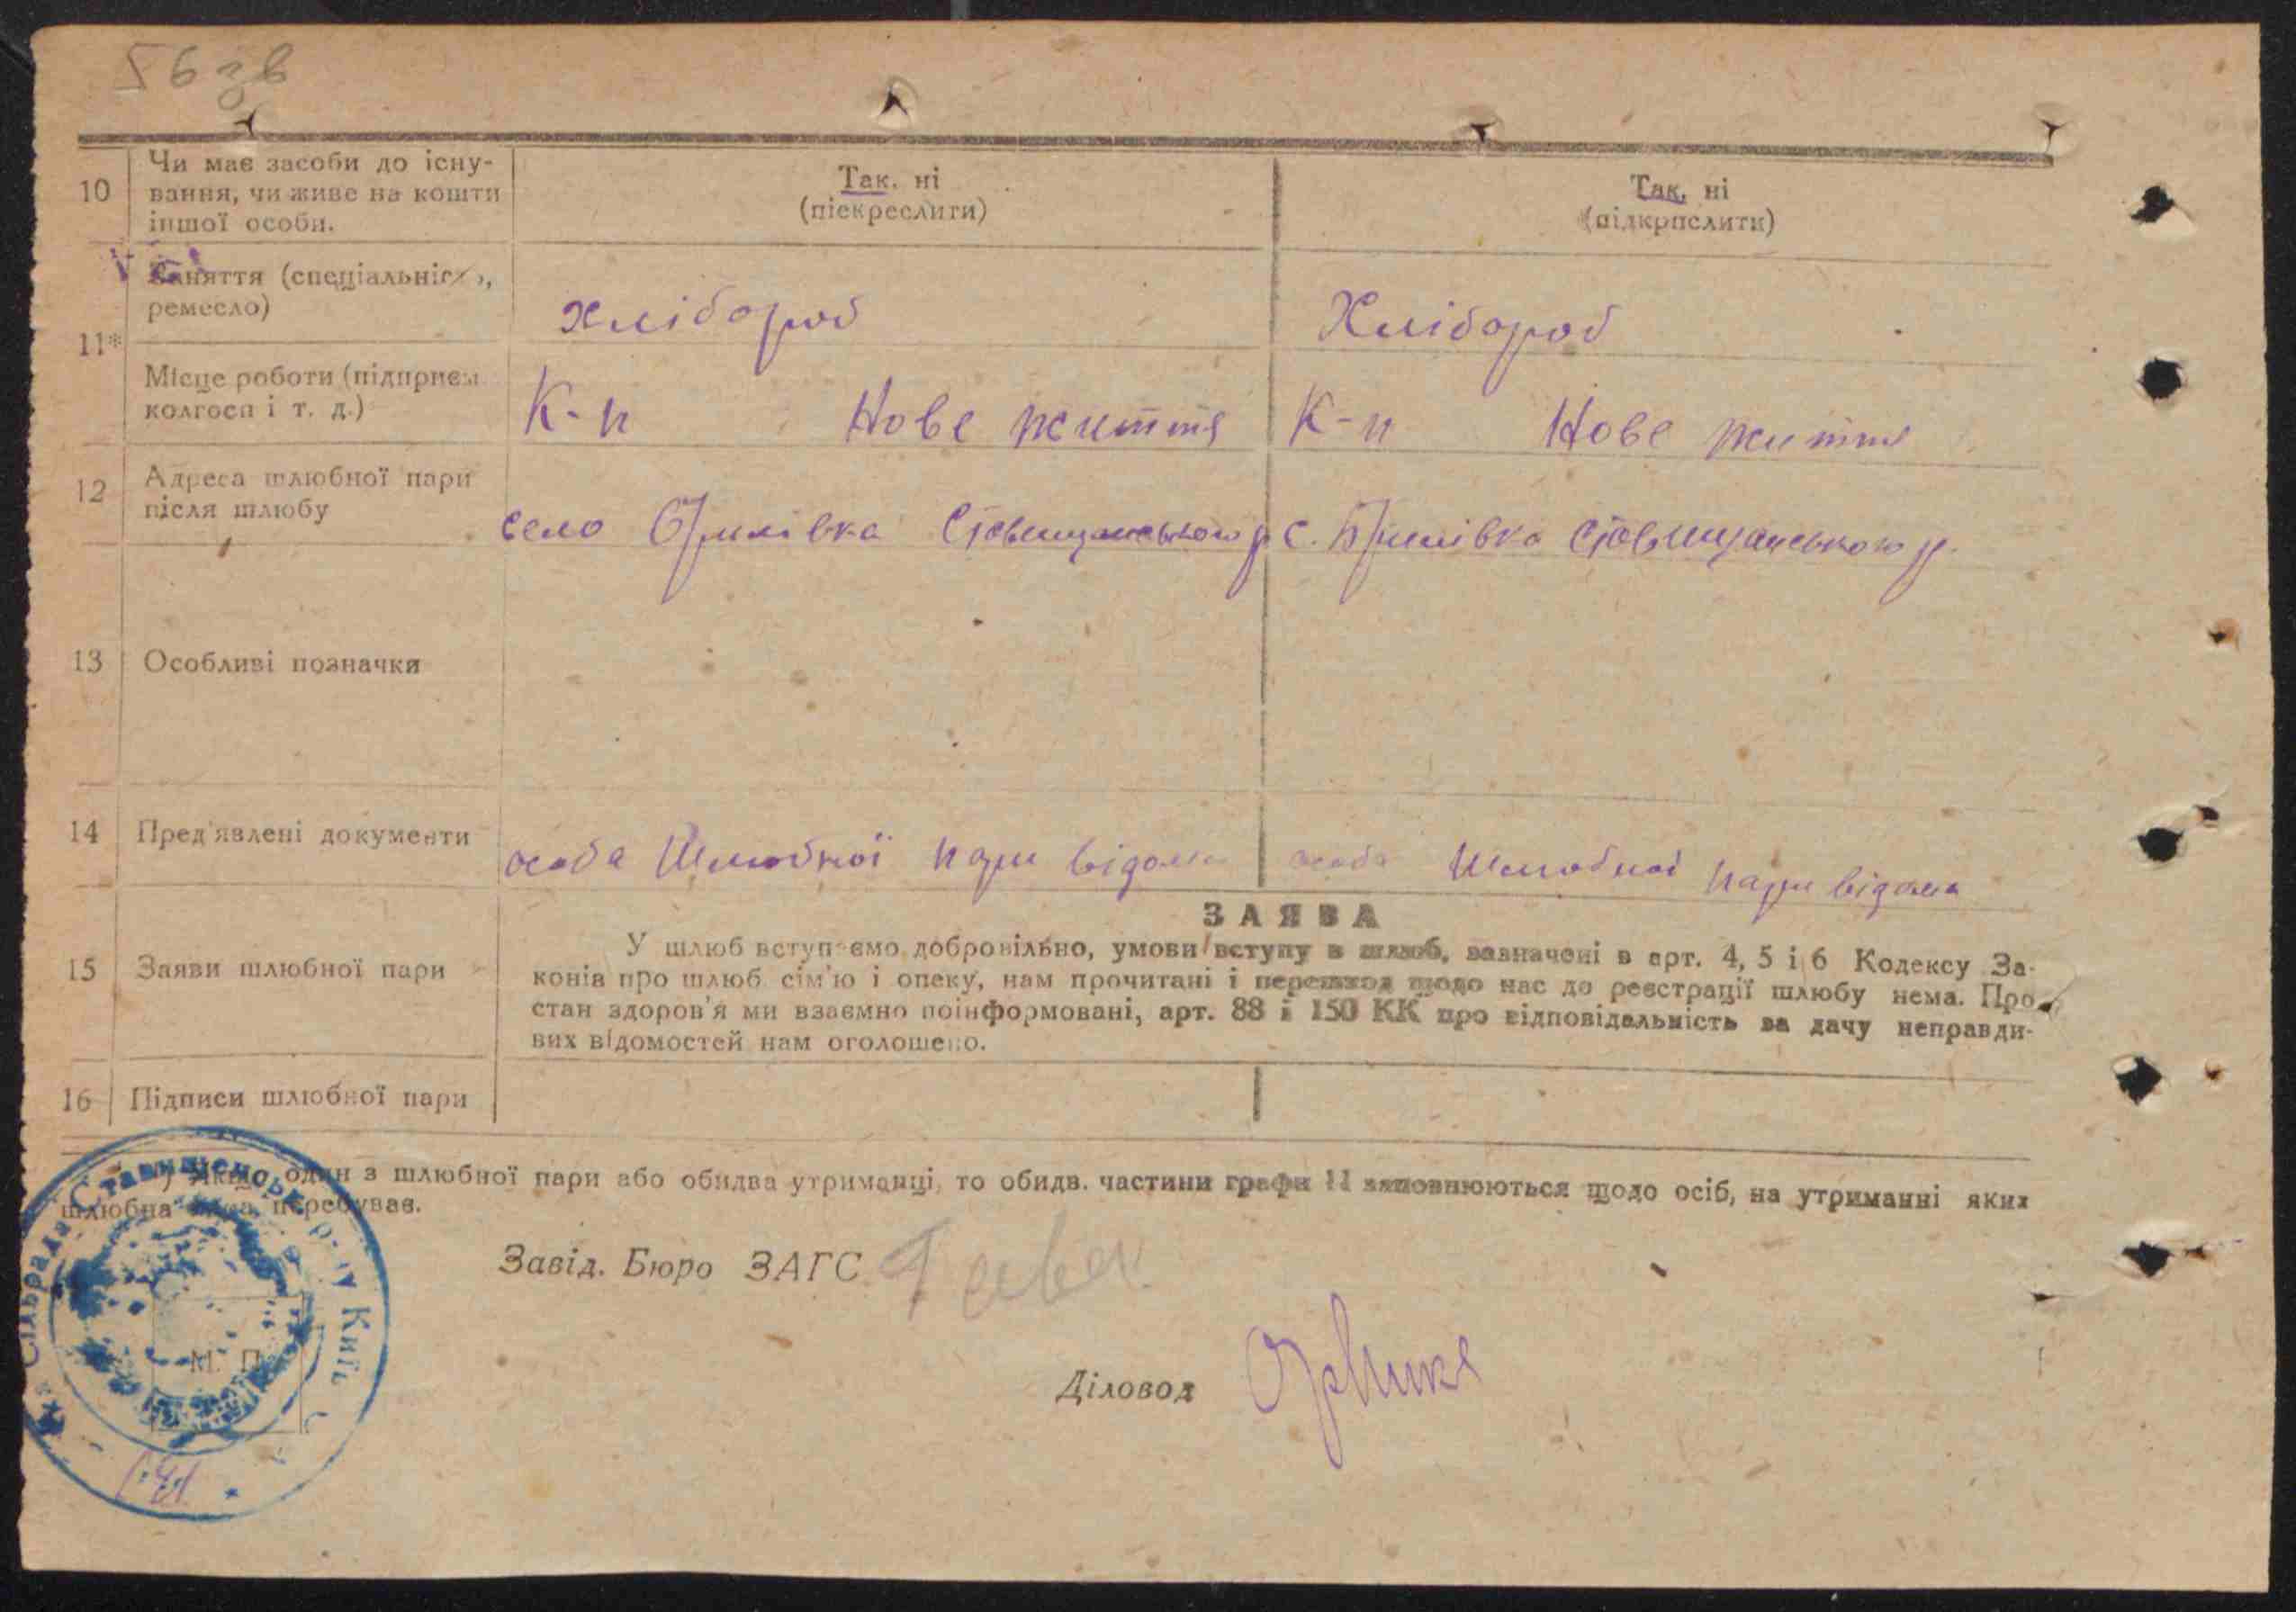 56 зв
10
Чи має засоби до існу-
вання, чи живе на кошти
іншої особи.
Так, ні
(піекреслиги)
Так, ні
(підкрпслити)
11*
Заняття (спеціальніс ь,
ремесло)
хлібороб
Хлібороб
Місце роботи (підприєм
колгосп і т. д.)
К-п Нове життя
К-п Нове життя
12
Адреса шлюбної пари
після шлюбу
село Брилівка Ставищанського р
с. Брилівка Ставищанського р.
13
Особливі позначки
14
Пред'явлені документи
особа Шлюбної пари відома
особа Шлюбної пари відома
15
Заяви шлюбної пари
ЗАЯВА
У шлюб вступаємо добровільно, умови вступу в шлюб, зазначені в арт. 4, 5 і 6 Кодексу За-
конів про шлюб сім'ю і опеку, нам прочитані і перешкод щодо нас до реєстрації шлюбу нема. Про
стан здоров'я ми взаємно поінформовані, арт. 88 і 150 КК про відповідальність за дачу неправди-
вих відомостей нам оголошено.
16
Підписи шлюбної пари
) Якщо один з шлюбної пари або обидва утриманці, то обидв. частини графи 11 заповнюються щодо осіб, на утриманні яких
шлюбна пара перебуває.
Завід. Бюро ЗАГС
Діловод
М. П.
Сільрада Ставищенськ р-ну Київ